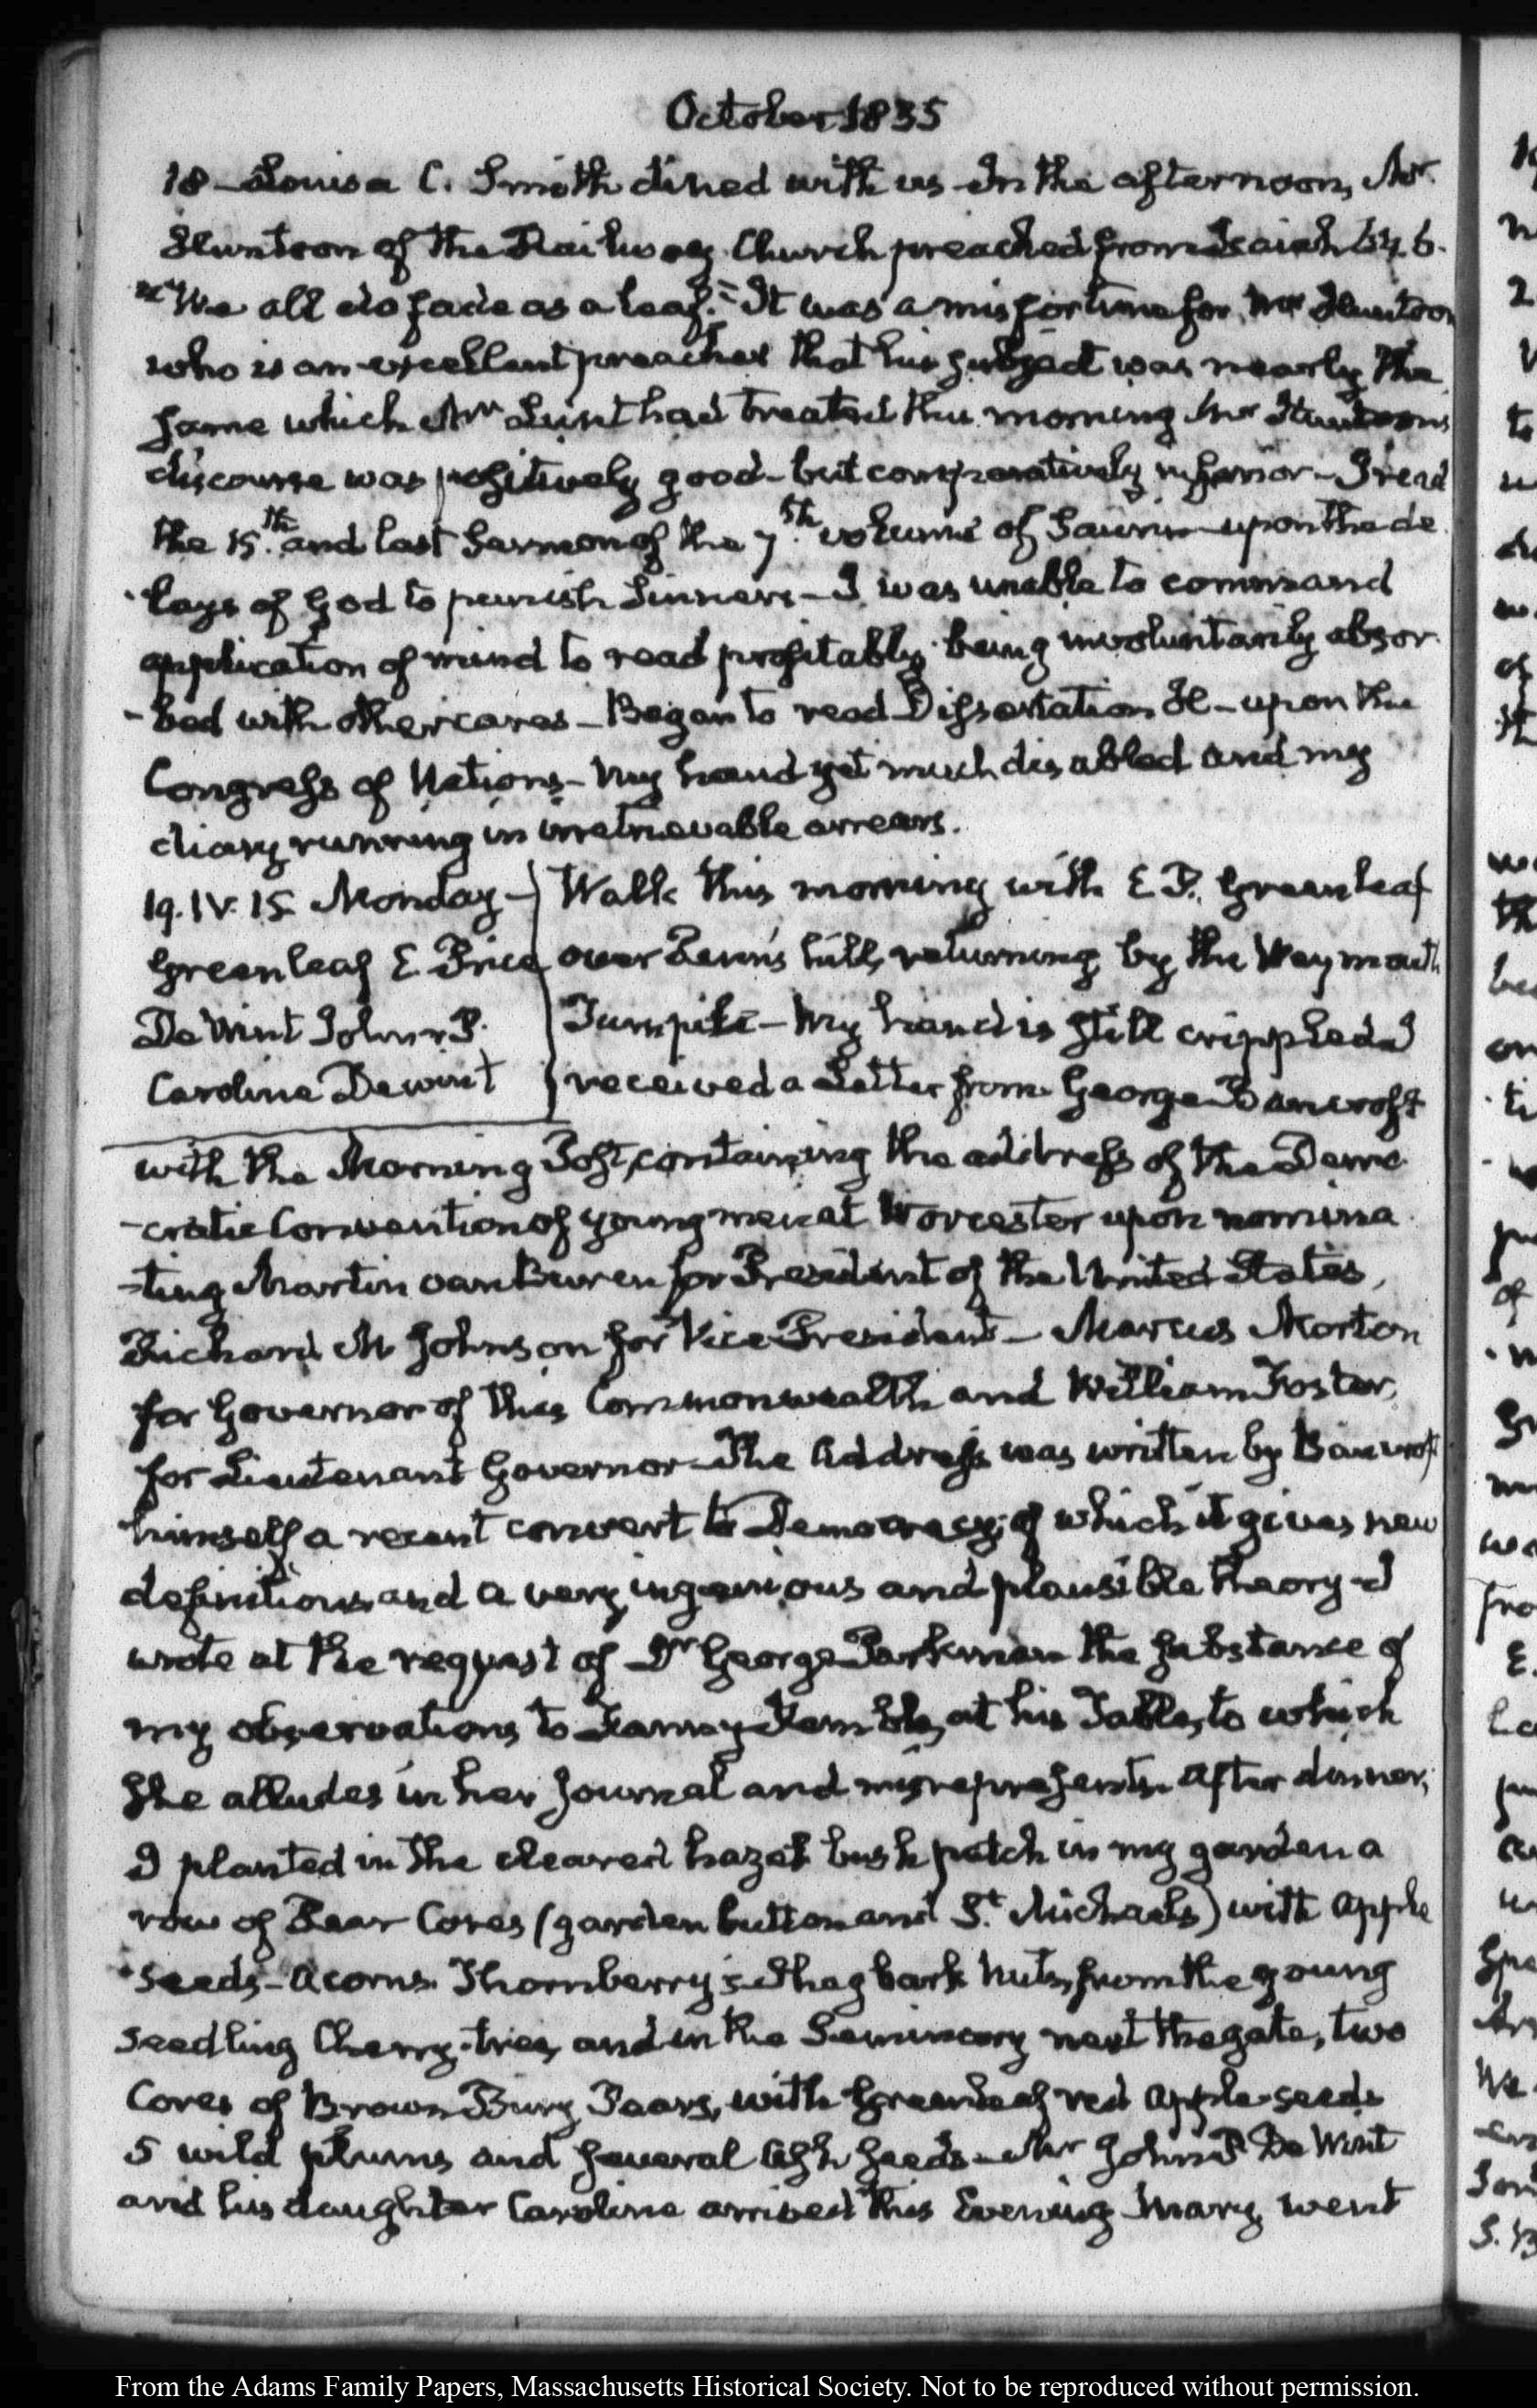 October 1835
18 — Louisa C. Smith dined with us — In the afternoon, Mr.
Huntoon of the Railway Church preached from Isaiah 64. 6.
"We all do fade as a leaf." It was a misfortune for Mr Huntoon
who is an excellent preacher that his subject was nearly the
same which Mr Lunt had treated this morning Mr Huntoon's
discourse was positively good — but comparatively inferior — I read
the 15.th and last Sermon of the 7.th volume of Saurin — upon the de
-lays of God to punish Sinners — I was unable to command
application of mind to read profitably being involuntarily absor
-bed with other cares — Began to read Dissertation — upon the
Congress of Nations — My hand yet much disabled and my
diary running in irretrievable arrears.
19. IV. 15. Monday —
Greenleaf E Price
De Wint John P.
Caroline Dewint
Walk this morning with E P. Greenleaf
over Penn's hill, returning by the Weymouth
Turnpike — My hand is still crippled I
received a Letter from George Bancroft
with the Morning Post, containing the address of the Demo
-cratic Convention of young men at Worcester upon nomina
-ting Martin van Buren for President of the United States,
Richard M Johnson for Vice President — Marcus Morton
for Governor of this Commonwealth and William Foster,
for Lieutenant Governor — The Address was written by Bancroft
himself a recent convert to Democracy, of which it gives new
definitions and a very ingenious and plausible theory — I
wrote at the request of Dr George Parkman the substance of
my observations to Fanny Kemble, at his Table, to which
she alludes in her Journal and misrepresents. After dinner,
I planted in the cleared hazel bush patch in my garden a
row of Pear Cores (garden button and St. Michaels) with apple
seeds — Acorns. Thornberry's Shagbark Nuts, from the young
seedling Cherry-tree, and in the Seminary next the gate, two
Cores of Brown Bury Pears, with Greenleaf red apple-seeds
5 wild plums and several Ash seeds — Mr John P De Wint
and his daughter Caroline arrived this Evening Mary went
From the Adams Family Papers, Massachusetts Historical Society. Not to be reproduced without permission.